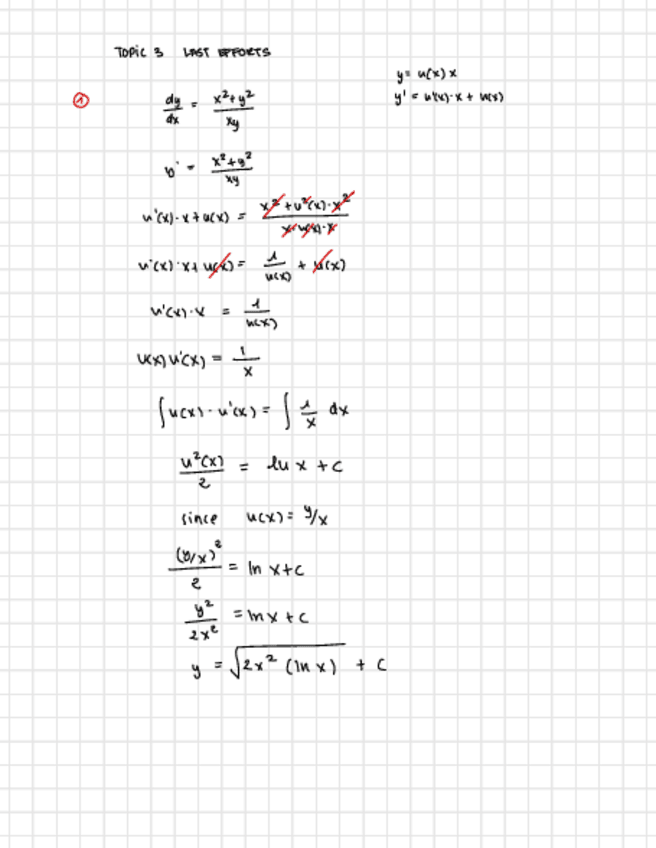 TOPIC 3 LAST EFFORTS
y = u(x) x
y' = u'(x)·x + u(x)
① dy/dx = (x²+y²)/(xy)
y' = (x²+y²)/(xy)
u'(x)·x + u(x) = (x² + u²(x)·x²)/(x·u(x)·x)
u'(x)·x + u(x) = 1/u(x) + u(x)
u'(x)·x = 1/u(x)
u(x) u'(x) = 1/x
∫ u(x) · u'(x) = ∫ 1/x dx
u²(x)/2 = ln x + c
since u(x) = y/x
(y/x)²/2 = ln x + c
y²/(2x²) = ln x + c
y = √(2x² (ln x)) + C